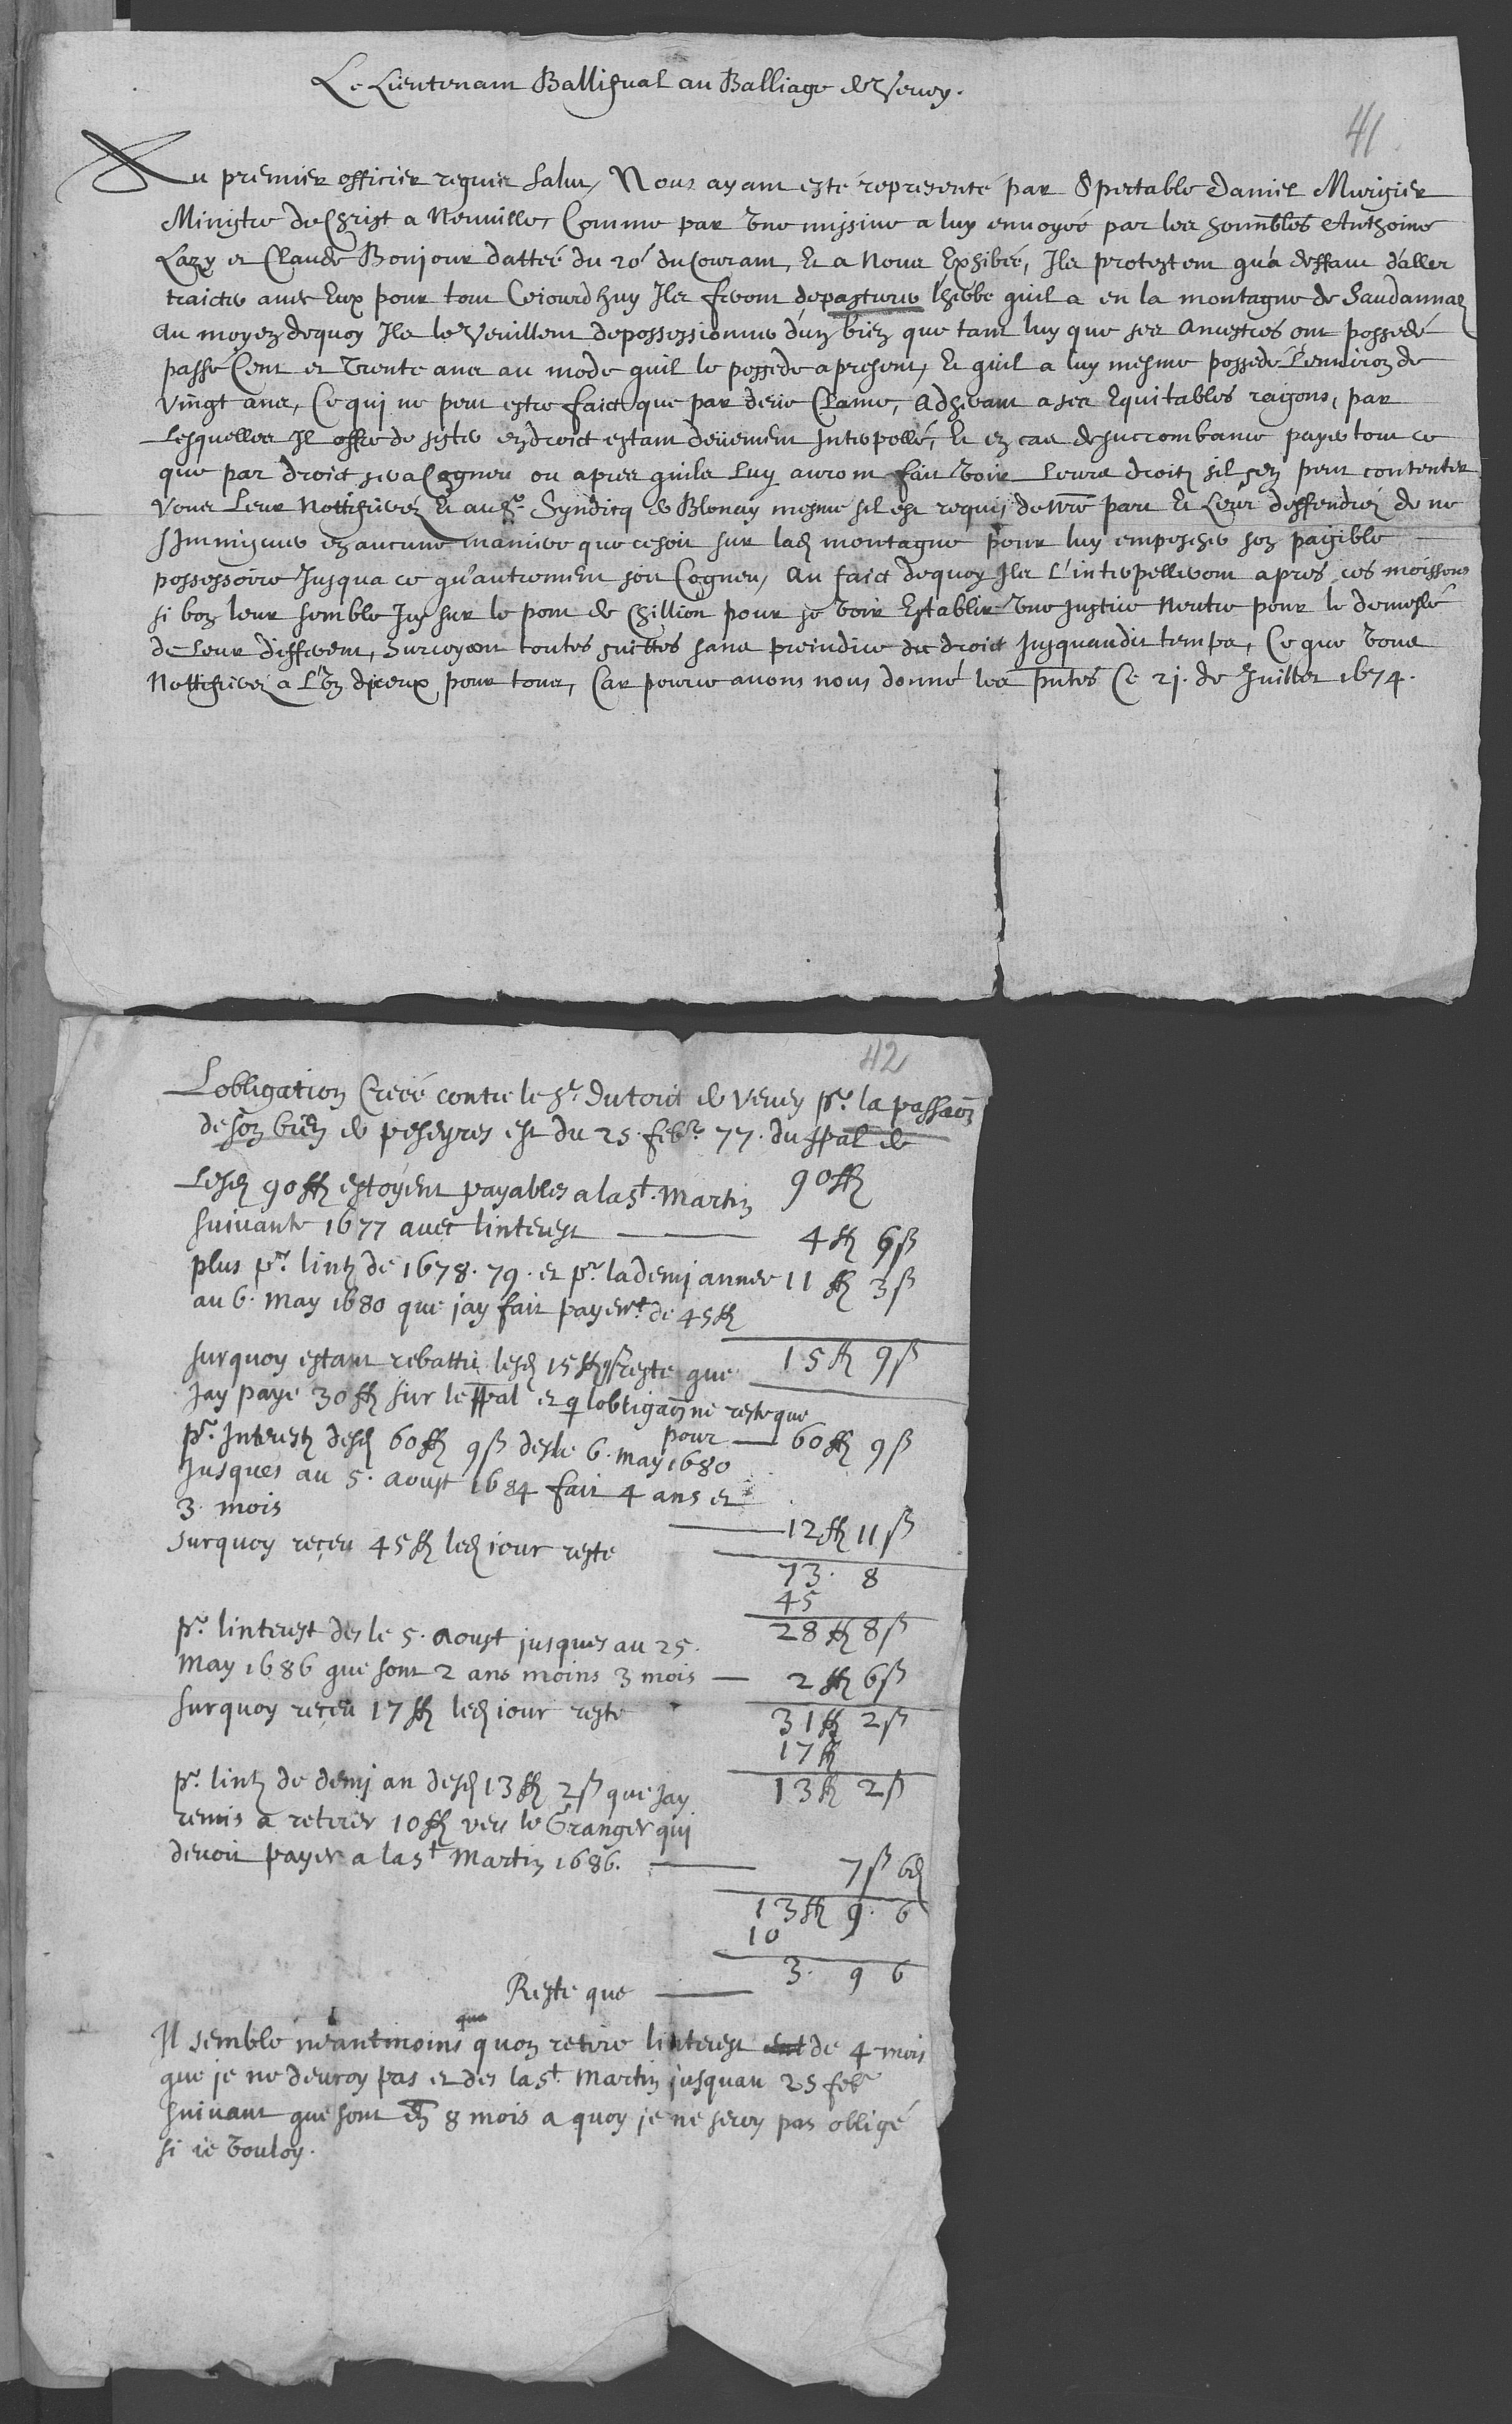 Le Lieutenant Ballifual au Balliage de Vevey.
41
Au premier officier requis salut, Nous ayant esté representé par Spectable Daniel Murisier
Ministre de Christ a Neuville, Comme par une missive a luy envoyée par les honnbles Anthoine
Lazy et Claude Bonjour dattée du 20e du Courant, Et a Nous Exhibée, Ils protestent qu'a deffaut d'aller
traicter avec Eux pour tout Cejourdhuy Ils feront depasturer lherbe quil a en la montagne de Saudannaz
Au moyen dequoy Ils le Veuillent depossessionner d'un bien que tant luy que ses Ancestres ont possedé
passé Cent et Trente ans au mode quil le possede apresent, Et quil a luy mesme possedé L'environ de
Vingt ans, Ce qui ne peut estre faict que par deüe Clame, Adherant a ses Equitables raisons, par
Lesquelles Il offre de sister en droict estant deüement Interpellé, Et en cas de succombance payer tout ce
que par droict sera Cogneu ou apres quils Luy auront fait voir Leurs droits sil s'en peut contenter
Vous Leur Nottifierez Et au Sr. Syndicq de Blonay mesme sil est requis de nre part Et Leur deffendrez de ne
s'Immiscuer en aucune maniere que ce soit sur lad montagne pour luy empescher son paisible
possessoire Jusqua ce qu'autrement soit Cogneu, Au faict dequoy Ils L'interpelleront apres ces moissons
si bon leur semble Icy sur le pont de Chillion pour se voir Establir une Justice Neutre pour le demeslé
de Leur different, Surceyant toutes suittes sans preiudice du droict Jusquaudit temps, Ce que vous
Nottifierez a L'un diceux pour tous, Car pource avons nous donné les pntes Ce 21. de Juillet 1674.
42
Lobligation Creée contre le Sr. Dutoit de Vevey pr. la passaon
de son bien de peseyres est du 25. febr. 77. du ppal de
90 ff
Lesd 90 ff estoyent payables a la St. Martin
suivante 1677 avec linterest 4 ff 6 ß
plus pr. lint de 1678. 79. et pr. la demj annee 11 ff 3 ß
au 6. May 1680 que jay fait payemt. de 45 ff
15 ff 9 ß
surquoy estant rebattu lesd 15 ff 9 ß reste que
Jay paye 30 ff sur le ppal et q lobligaon ne reste que
pour 60 ff 9 ß
pr. Interest desd 60 ff 9 ß desle 6. May 1680
Jusques au 5. Aoust 1684 fait 4 ans et
3. mois 12 ff 11 ß
surquoy reçeu 45 ff led iour reste
73. 8
45
28 ff 8 ß
pr. linterest des le 5. Aoust jusques au 25.
May 1686 que sont 2 ans moins 3 mois 2 ff 6 ß
surquoy reçeu 17 ff led iour reste 31 ff 2 ß
17 ff
13 ff 2 ß
pr. lint de demj an desd 13 ff 2 ß que Jay
remis a retirer 10 ff vers le Granger qui
devoit payer a la St Martin 1686. 7 ß 6 d
13 ff 9. 6
10
Reste que 3. 9 6
Il semble neantmoins que quon retire linterest de 4 mois
que je ne devroy pas et des la St. Martin jusquau 25 feb
suivant que sont en 8 mois a quoy je ne seroy pas obligé
si ie vouloy.